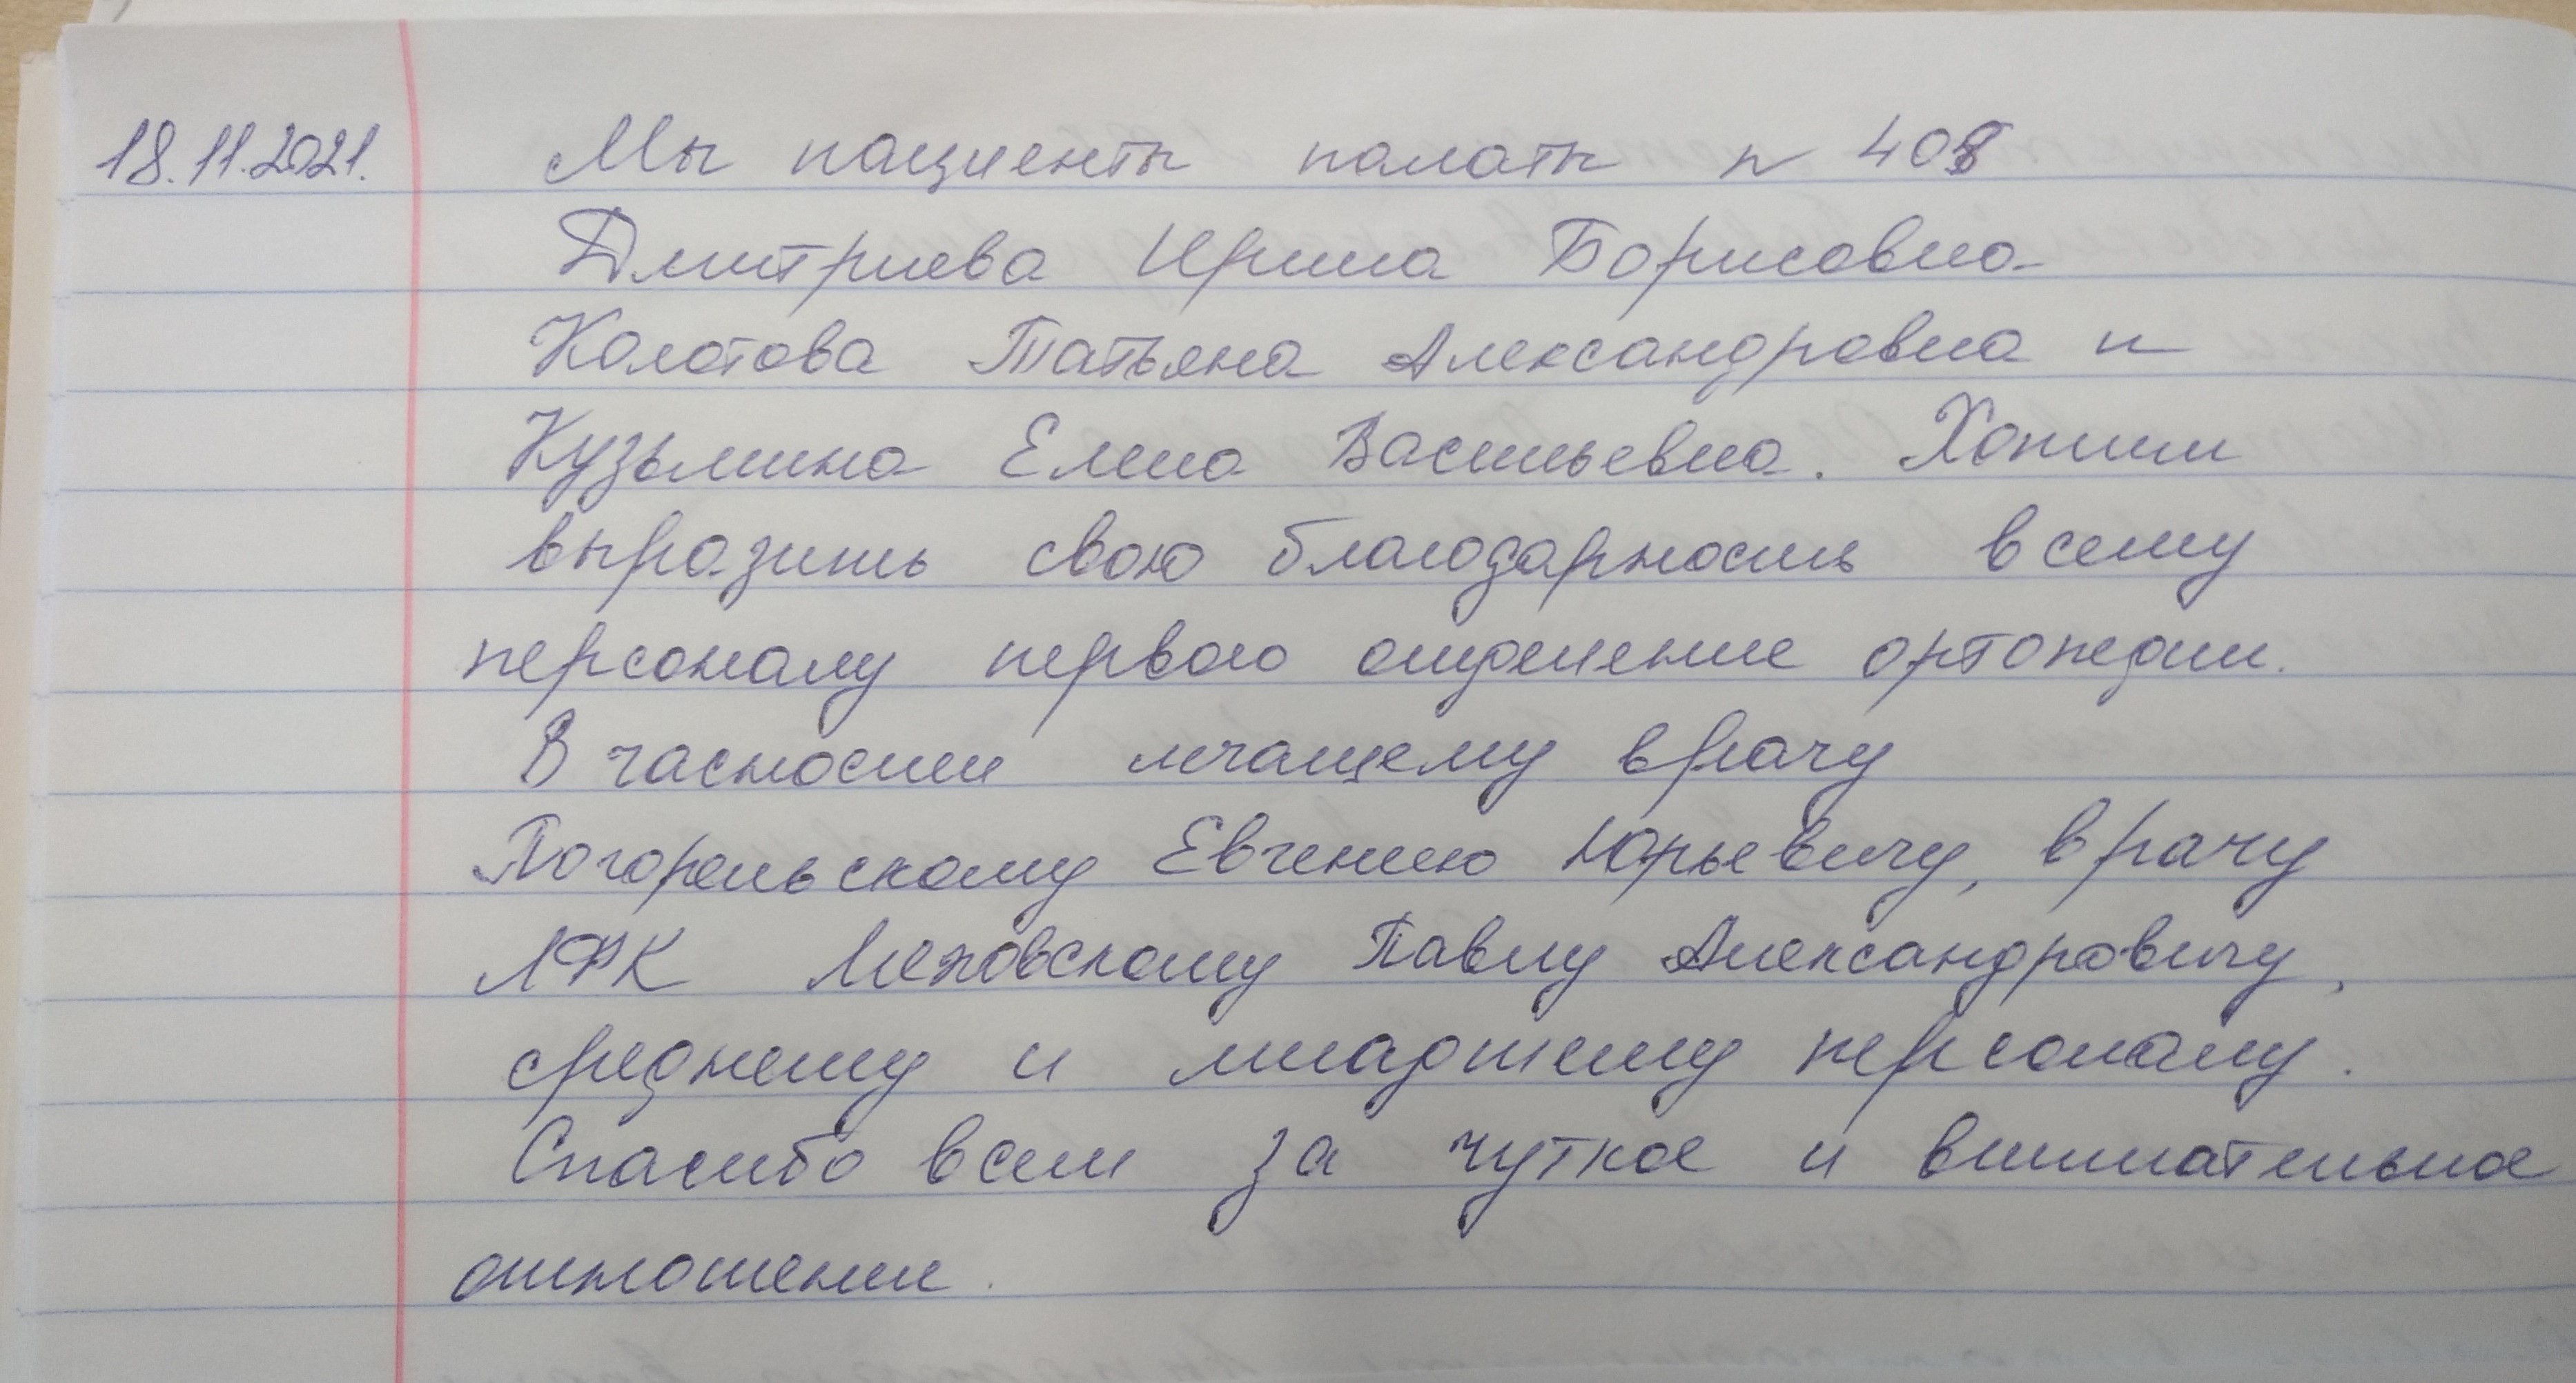 18.11.2021. Мы пациенты палаты n 408
Дмитриева Ирина Борисовна
Колотова Татьяна Александровна и
Кузьмина Елена Васильевна. Хотим
выразить свою благодарность всему
персоналу первого отделение ортопедии.
В часности лечащему врачу
Погорельскому Евгению Юрьевичу, врачу
ЛФК Меховскому Павлу Александровичу,
среднему и младшему персоналу.
Спасибо всем за чуткое и внимательное
отношение.